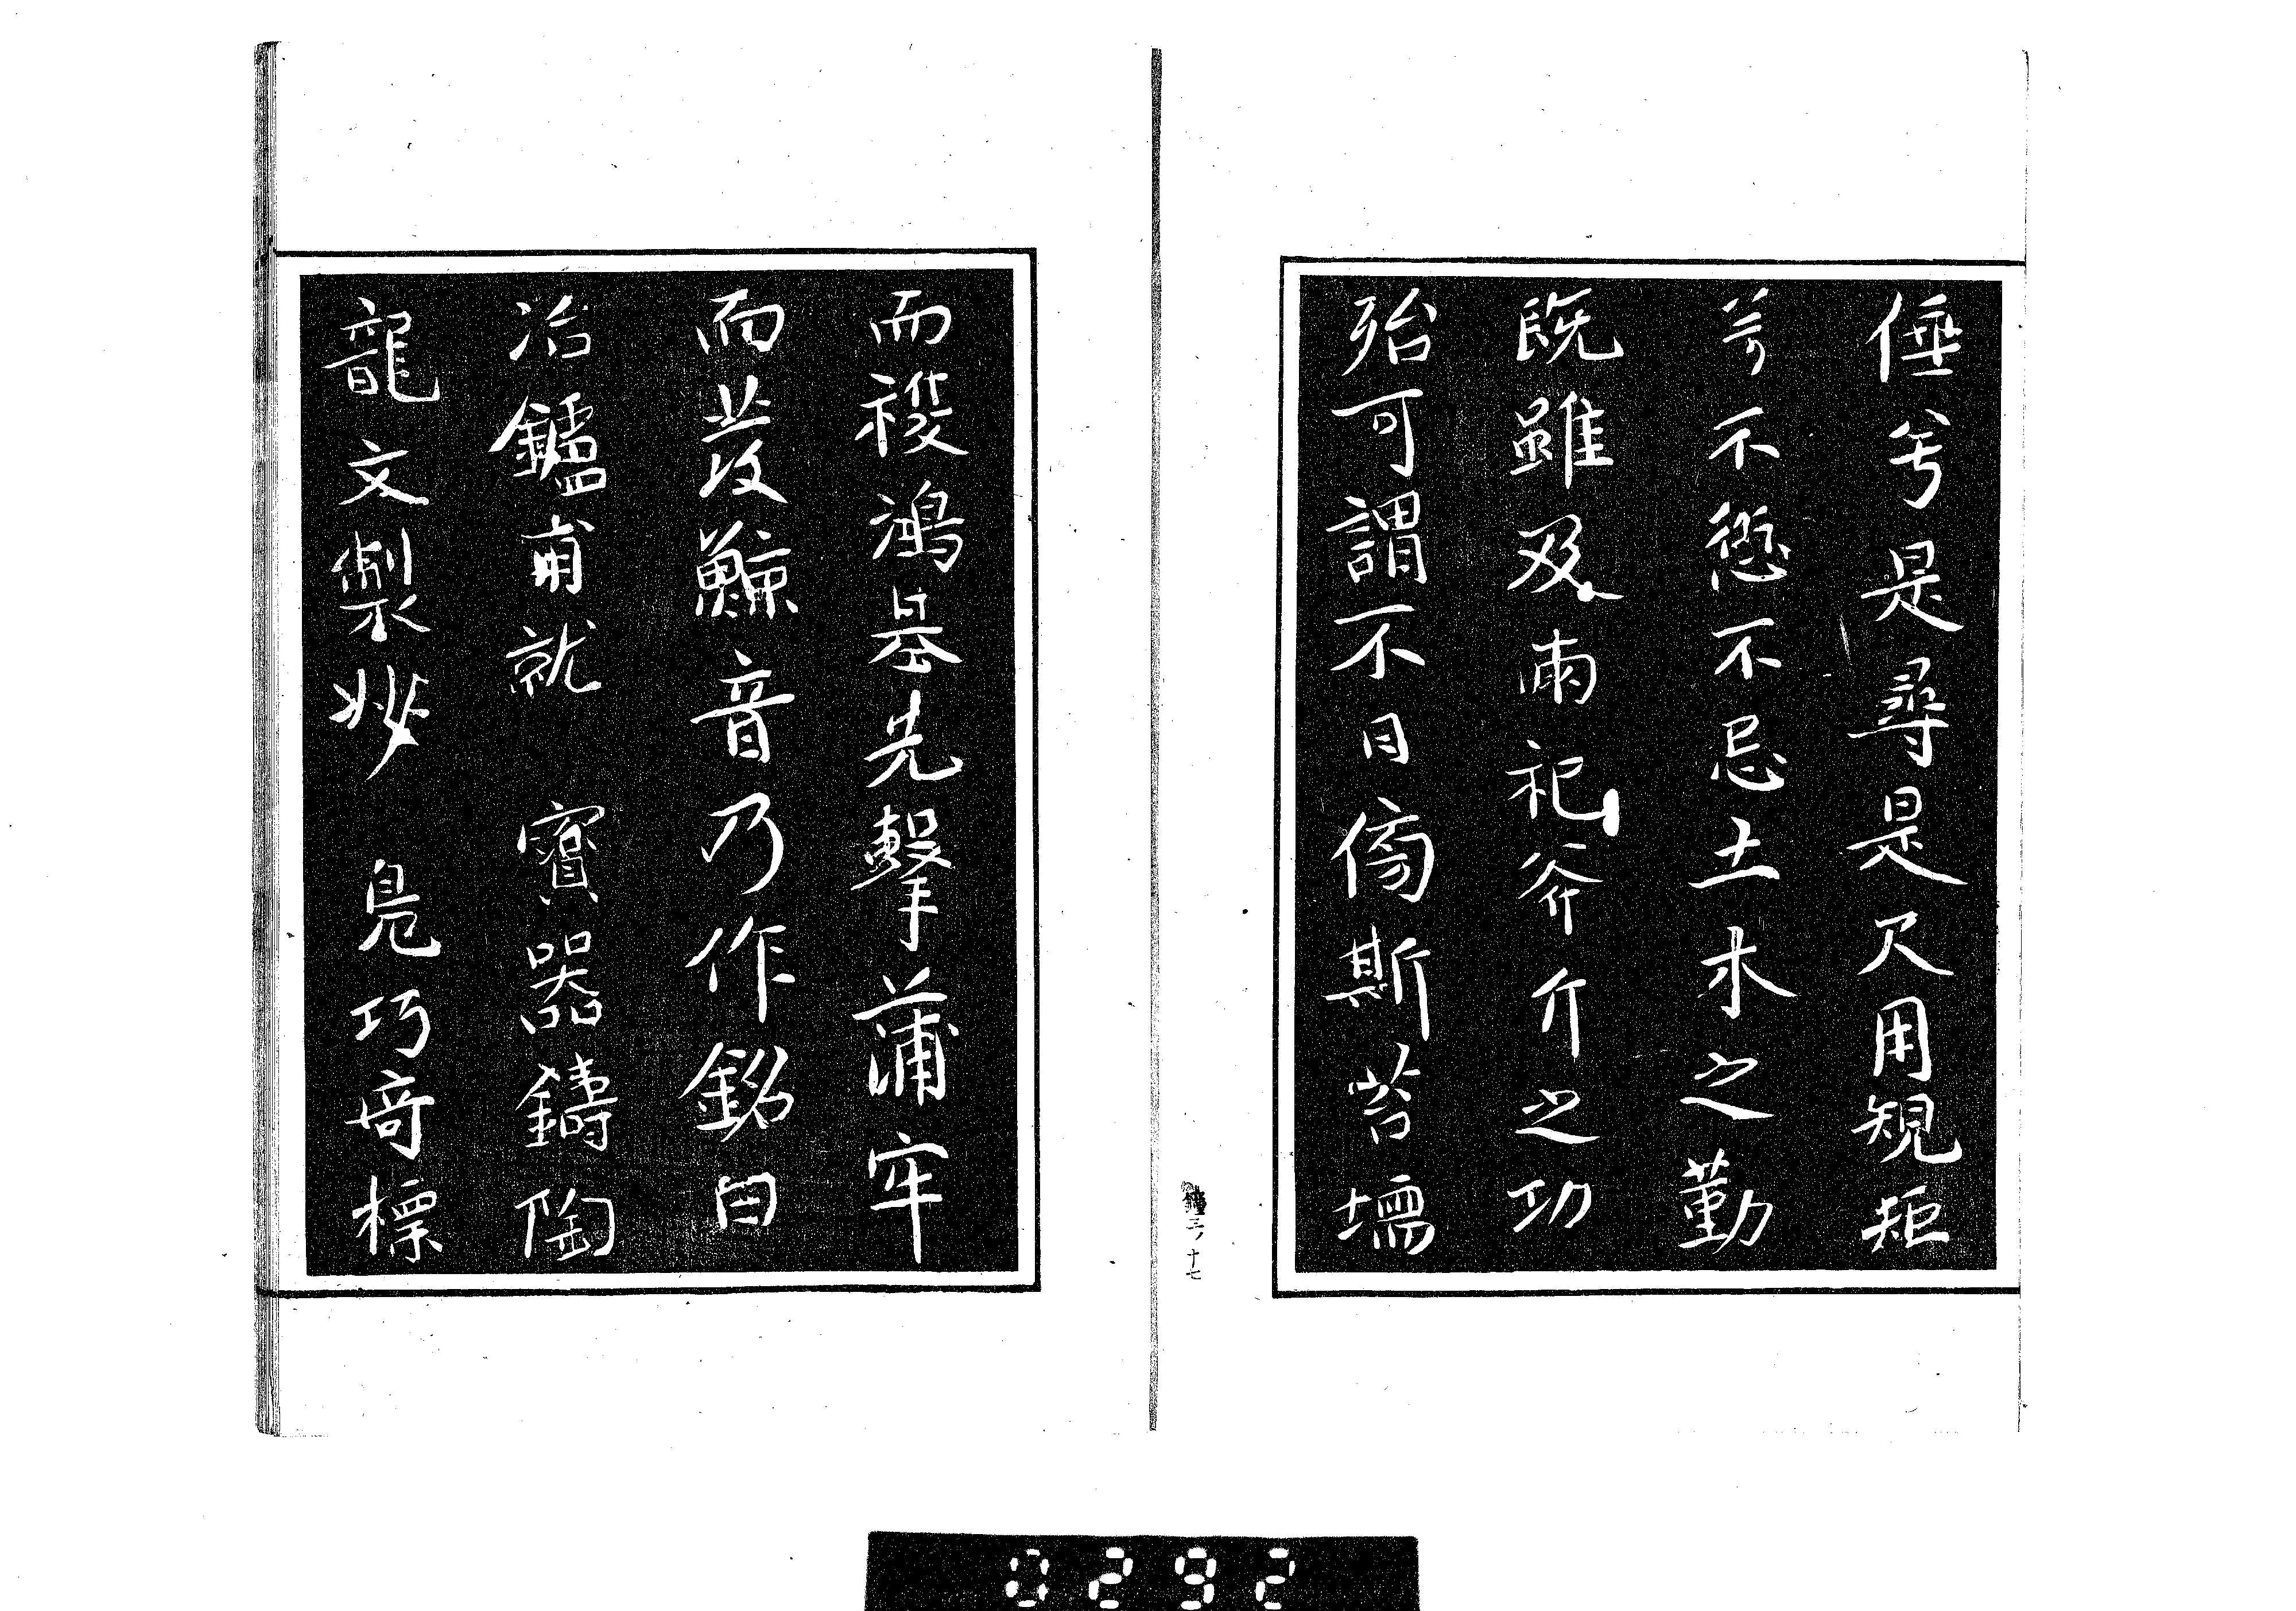 倕兮是尋是尺用規矩
兮不愆不忌土木之勤
既雖及兩祀斧斤之功
殆可謂不日傍斯苔壖
而稷鴻基先擊蒲牢
而發鯨音乃作銘曰
冶鑪甫就 寶器鑄陶
龍文製妙 鳧巧奇標
鐘三ノ十七
0292